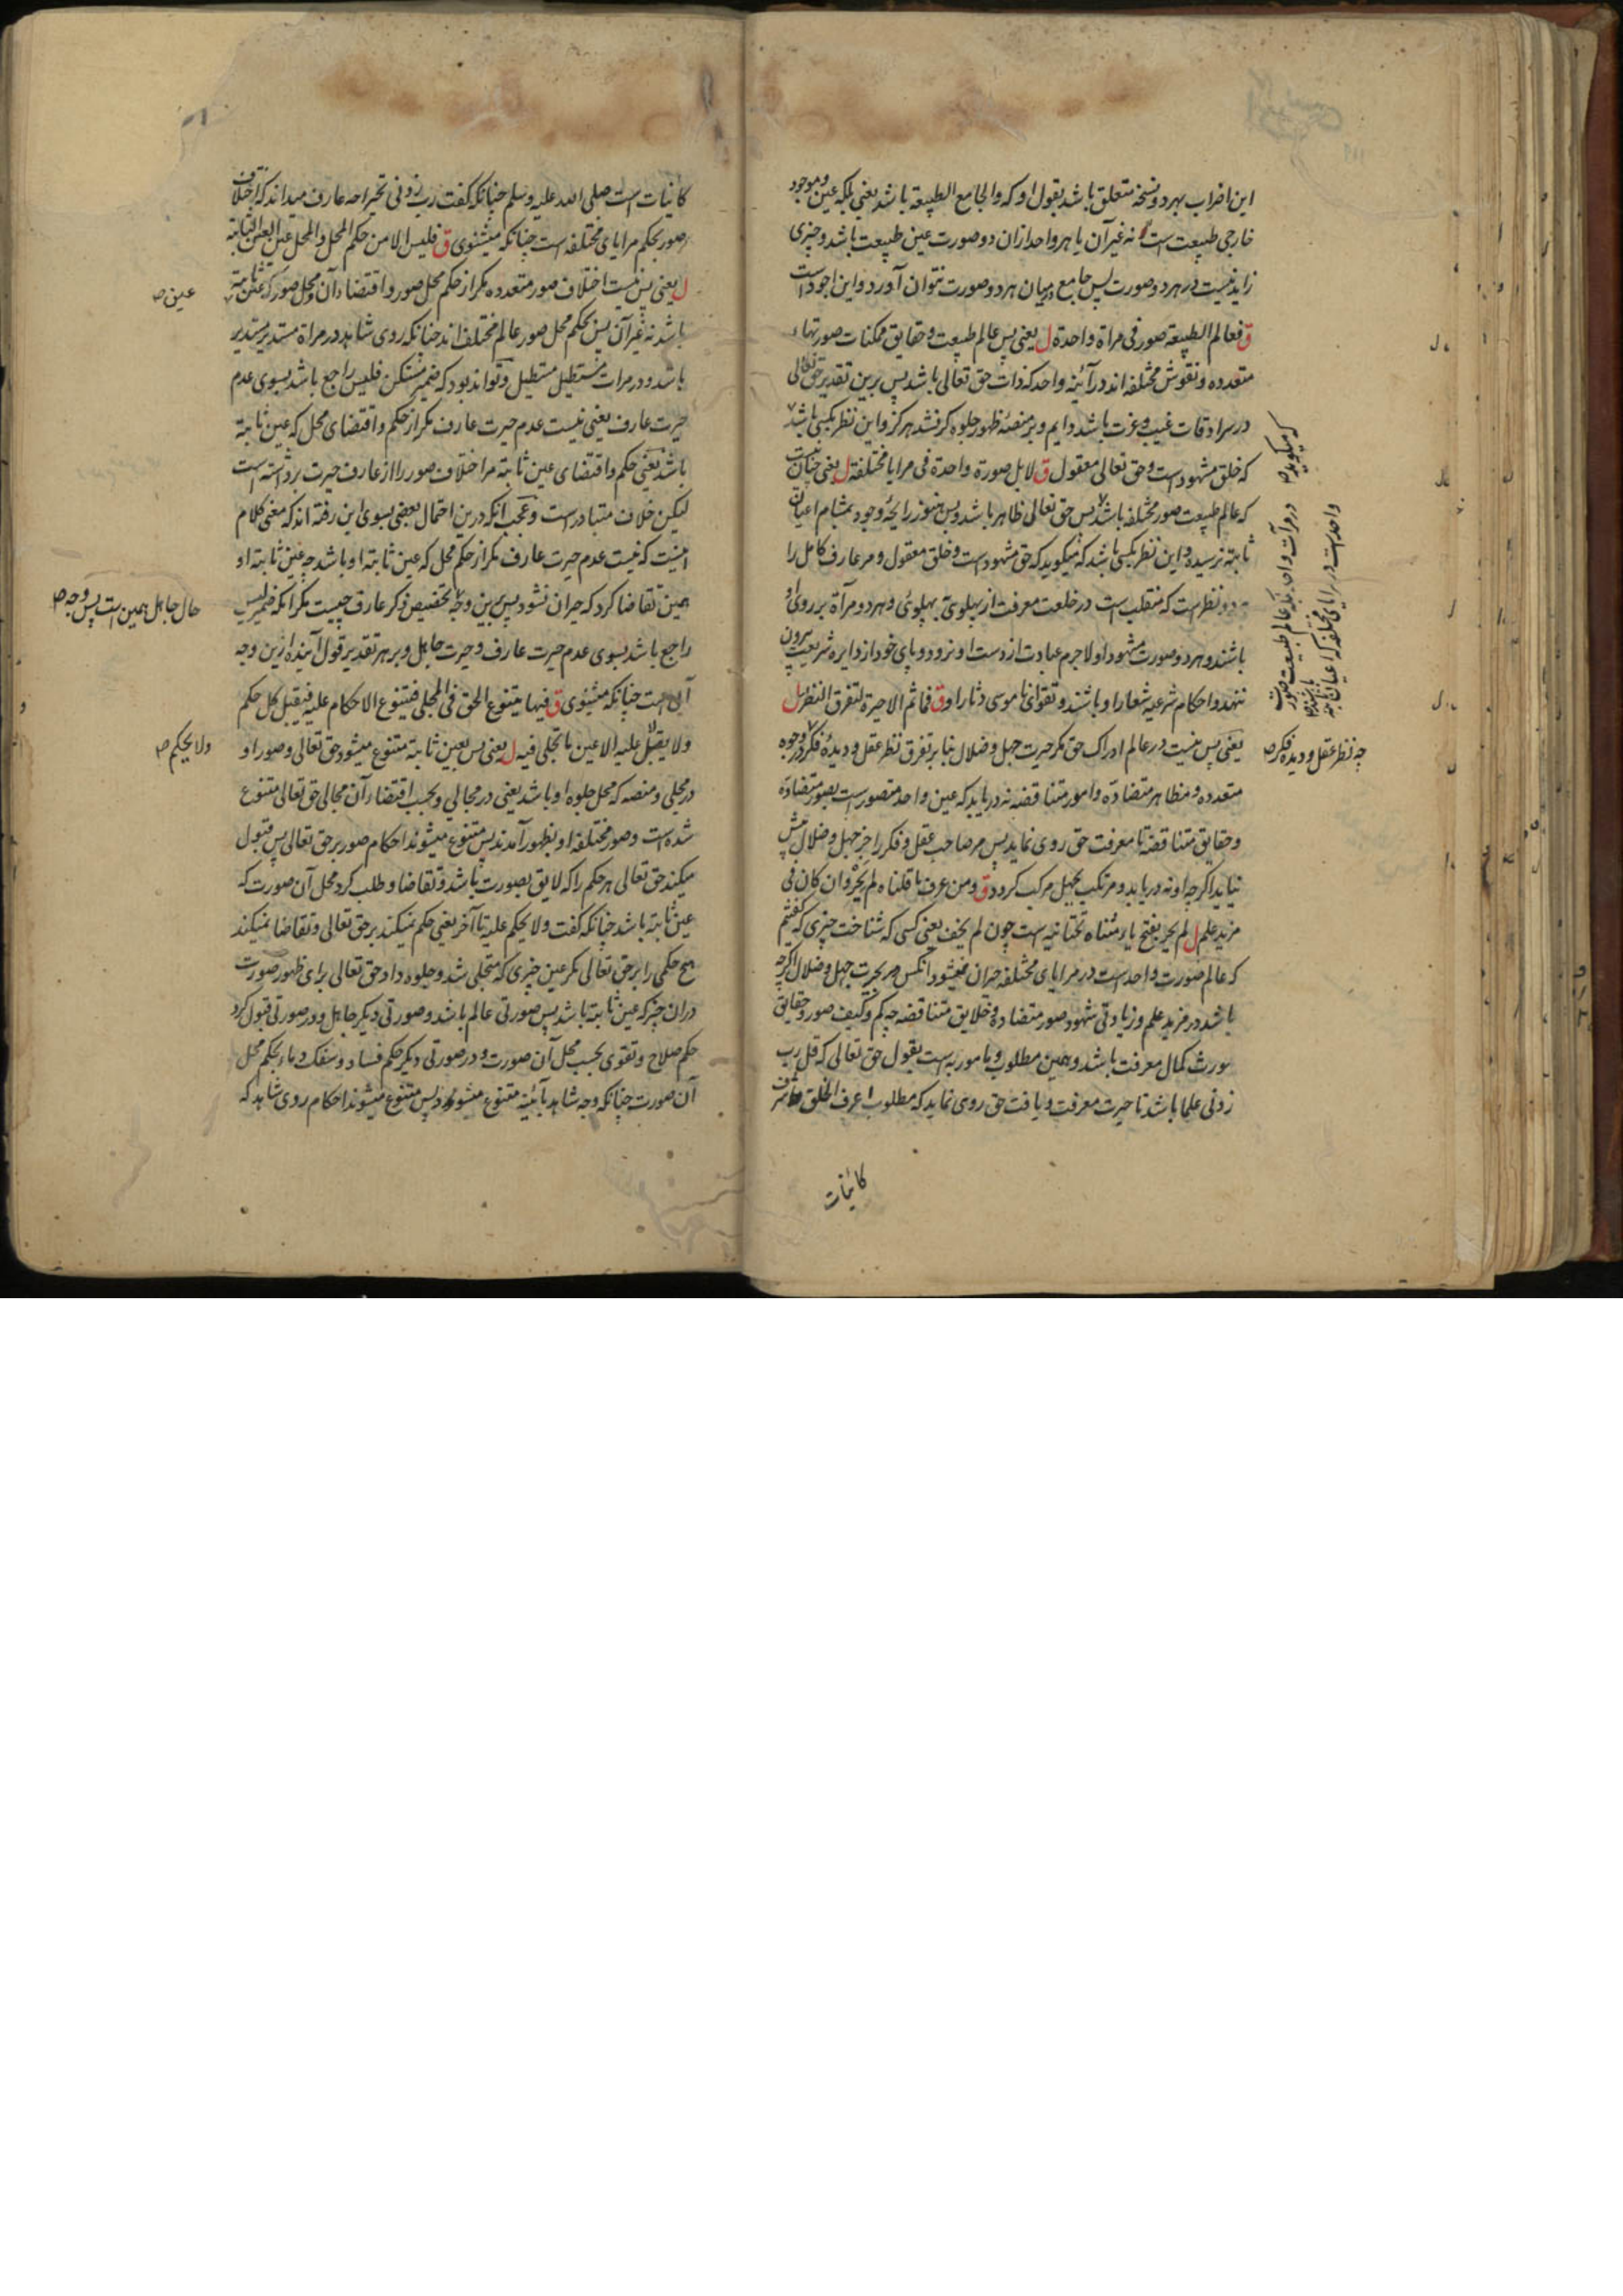 این اضراب بهر دو نسخه متعلق باشد بقول او که والجامع الطبیعة باشد یعنی بلکه عین وموجود
خارجی طبیعت است نه غیر آن یا هر واحد ازان دو صورت عین طبیعت باشد و چیزی
زاید نیست در هر دو صورت پس جامع درمیان هر دو صورت نتوان آورد و این اجود است
ق فعالم الطبیعة صور فی مراة واحدة ل یعنی پس عالم طبیعت و حقایق ممکنات صورتهاء
متعدده و نقوش مختلفه اند در آئینه واحد که ذات حق تعالی باشد پس برین تقدیر حق تعالی
در سرادقات غیب و عزت باشد دایم و بر منصهٔ ظهور جلوه کر نشد هرکز و این نظر کسی باشد
که خلق مشهود است و حق تعالی معقول ق لا بل صورة واحدة فی مرایا مختلفة ل یعنی چنان نیست
که عالم طبیعت صور مختلفه باشد بس حق تعالی ظاهر باشد و بس هنوز رایحهٔ وجود بمشام اعیان
ثابته نرسیده و این نظر کسی باشد که میکوید که حق مشهود است و خلق معقول و مر عارف کامل را
هر دو نظر است که منقلب است در خلعت معرفت از پهلوی بپهلوی و هر دو مرآة بر روی او
باشند و هر دو صورت مشهود او لاجرم عبادت از دست او نرود و پای خود از دایره شریعت بیرون
ننهد و احکام شرعیه شعار او باشند و تقوای ناموسی دثار او ق فما ثم الا حیرة لتفرق النظر ل
یعنی پس نیست در عالم ادراک حق مکر حیرت جهل و ضلال بنابر تفرق نظر عقل و دیدهٔ فکر در وجوه
متعدده و مظاهر متضاده و امور متناقضه نه دریابد که عین واحد متصور است بصور متضاده
و حقایق متناقضه تا معرفت حق روی نماید پس مر صاحب عقل و فکر را جز جهل و ضلال پیش
نیاید اکرچه او نه دریابد و مرتکب بجهل مرکب کردد ق ومن عرف ما قلناه لم یحر وان کان فی
مزید علم ل لم یحر بفتح یاء مثناة تحتانیه است چون لم یخف یعنی کسی که شناخت چیزی که کفتیم
که عالم صورت واحد است در مرایای مختلفه حیران نمیشود آنکس در حیرت جهل و ضلال اکرچه
باشد در مزید علم و زیادتی شهود صور متضاده و خلایق متناقضه چه کم و کیف صور و حقایق
مورث کمال معرفت باشد و همین مطلوب و مامور به است بقول حق تعالی که قل رب
زدنی علما باشد تا حیرت معرفت و یافت حق روی نماید که مطلوب اعرف الخلق و اشرف
کائنات
که میکوید ص
در مرآت واحد بلکه عالم طبیعت صورت
واحد است در مرایای مختلفه که اعیان ثابته
باشند ص
چه نظر عقل و دیده فکر ص
کاینات است صلی الله علیه وسلم چنانکه کفت رب زدنی تحیرا چه عارف میداند که اختلاف
صور بحکم مرایای مختلفه است چنانکه میشنوی ق فلیس الا من حکم المحل والمحل عین العین الثابتة
ل یعنی پس نیست اختلاف صور متعدده مکر از حکم محل صور و اقتضاء آن و محل صور که عین ثابته
باشد نه غیر آن پس بحکم محل صور عالم مختلف اند چنانکه روی شاهد در مراة مستدیر مستدیر
باشد و در مرات مستطیل مستطیل و تواند بود که ضمیر مستکن فلیس راجع باشد بسوی عدم
حیرت عارف یعنی نیست عدم حیرت عارف مکر از حکم و اقتضای محل که عین ثابته
باشد یعنی حکم و اقتضای عین ثابته مر اختلاف صور را از عارف حیرت برداشته است
لیکن خلاف متبادر است و عجب آنکه درین احتمال بعضی بسوی این رفته اند که معنی کلام
اینست که نیست عدم حیرت عارف مکر از حکم محل که عین ثابته او باشد چه عین ثابته او
همین تقاضا کرد که حیران نشود پس برین وجه تخصیص ذکر عارف چیست مکر آنکه ضمیر لیس
راجع باشد بسوی عدم حیرت عارف و حیرت جاهل و بر هر تقدیر قول آینده ازین وجه
آبی است چنانکه میشنوی ق فبها یتنوع الحق فی المجلی فتتنوع الاحکام علیه فیقبل کل حکم
ولا یقبل علیه الا عین ما تجلی فیه ل یعنی بس بعین ثابته متنوع میشود حق تعالی و صور او
در مجلی و منصه که محل جلوه او باشد یعنی در مجالی و بحسب اقتضاء آن مجالی حق تعالی متنوع
شده است و صور مختلفه او بظهور آمدند پس متنوع میشوند احکام صور بر حق تعالی پس قبول
میکند حق تعالی هر حکم را که لایق بصورت باشد و تقاضا و طلب کرد محل آن صورت که
عین ثابته باشد چنانکه کفت ولا یحکم علیه تا آخر یعنی حکم نمیکند بر حق تعالی و تقاضا نمیکند
هیچ حکمی را بر حق تعالی مکر عین چیزی که متجلی شد و جلوه داد حق تعالی برای ظهور صورت
دران چیز که عین ثابته باشد پس صورتی عالم باشد و صورتی دیکر جاهل و در صورتی قبول کرد
حکم صلاح و تقوی بحسب محل آن صورت و در صورتی دیکر حکم فساد و سفک دماء بحکم محل
آن صورت چنانکه وجه شاهد بآئینه متنوع میشود پس متنوع میشوند احکام روی شاهد که
عین ص
حال جاهل همین است پس وجه ص
ولا یحکم ص